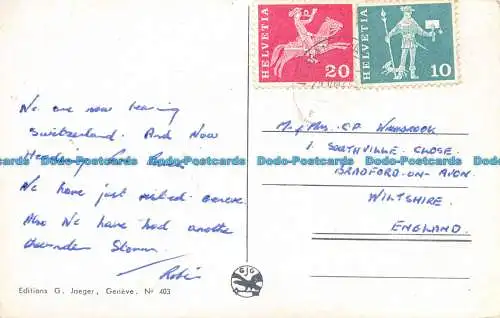 HELVETIA 20
HELVETIA 10
We are now leaving
Switzerland. And Now
Heading
We have just visited Geneve.
Also We have had another
thunder Storm.
Robin
Mr & Mrs. C.P.
1. SOUTHVILLE CLOSE.
BRADFORD-ON-AVON.
WILTSHIRE.
ENGLAND.
Editions G. Jaeger, Genève. Nº 403
Dodo-Postcards Dodo-Postcards Dodo-Postcards